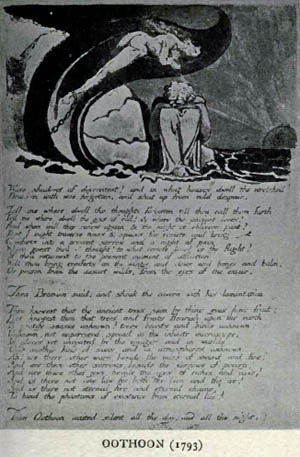 Wave shadows of discontent? and in what houses dwell the wretched
Drunken with woe forgotten, and shut up from cold despair.
Tell me where dwell the thoughts forgotten till thou call them forth
Tell me where dwell the joys of old! & where the ancient loves?
And when will they renew again & the night of oblivion past?
That I might traverse times & spaces far remote and bring
Comforts into a present sorrow and a night of pain
Where goest thou O thought! to what remote land is thy flight?
If thou returnest to the present moment of affliction
Wilt thou bring comforts on thy wings and dews and honey and balm;
Or poison from the desert wilds, from the eyes of the envier.
Then Bromion said: and shook the cavern with his lamentation
Thou knowest that the ancient trees seen by thine eyes have fruit;
But knowest thou that trees and fruits flourish upon the earth
To gratify senses unknown? trees beasts and birds unknown:
Unknown, not unpercievd, spread in the infinite microscope,
In places yet unvisited by the voyager, and in worlds
Over another kind of seas, and in atmospheres unknown:
Ah! are there other wars, beside the wars of sword and fire!
And are there other sorrows, beside the sorrows of poverty!
And are there other joys, beside the joys of riches and ease?
And is there not one law for both the lion and the ox?
And is there not eternal fire, and eternal chains?
To bind the phantoms of existence from eternal life?
Then Oothoon waited silent all the day, and all the night,
OOTHOON (1793)